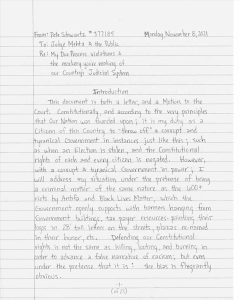 From: Pete Schwartz # 377185 Monday November 8, 2021
To: Judge Mehta & the Public
Re: My Due Process violations & the
mockery you're making of
our Country's Judicial System
Introduction
This document is both a letter, and a Motion to the
Court. Constitutionally, and according to the very principles
that Our Nation was founded upon; it is my duty as a
Citizen of this Country to "throw off" a corrupt and
tyrannical Government in instances just like this; such
as when an Election is stolen, and the Constitutional
rights of each and every citizen is negated. However,
with a corrupt & tyrannical Government in power; I
will address my situation under the pretense of being
a criminal matter of the same nature as the 600+
riots by Antifa and Black Lives Matter, which the
Government openly supports with banners hanging from
Government buildings, tax payer resources painting their
logo in 28 foot letters on the streets, plazas re-named
in their honor, etc. Defending our Constitutional
rights is not the same as killing, looting, and burning in
order to advance a false narrative of racism, but even
under the pretense that it is: the bias is flagrantly
obvious.
-1-
(of 21)